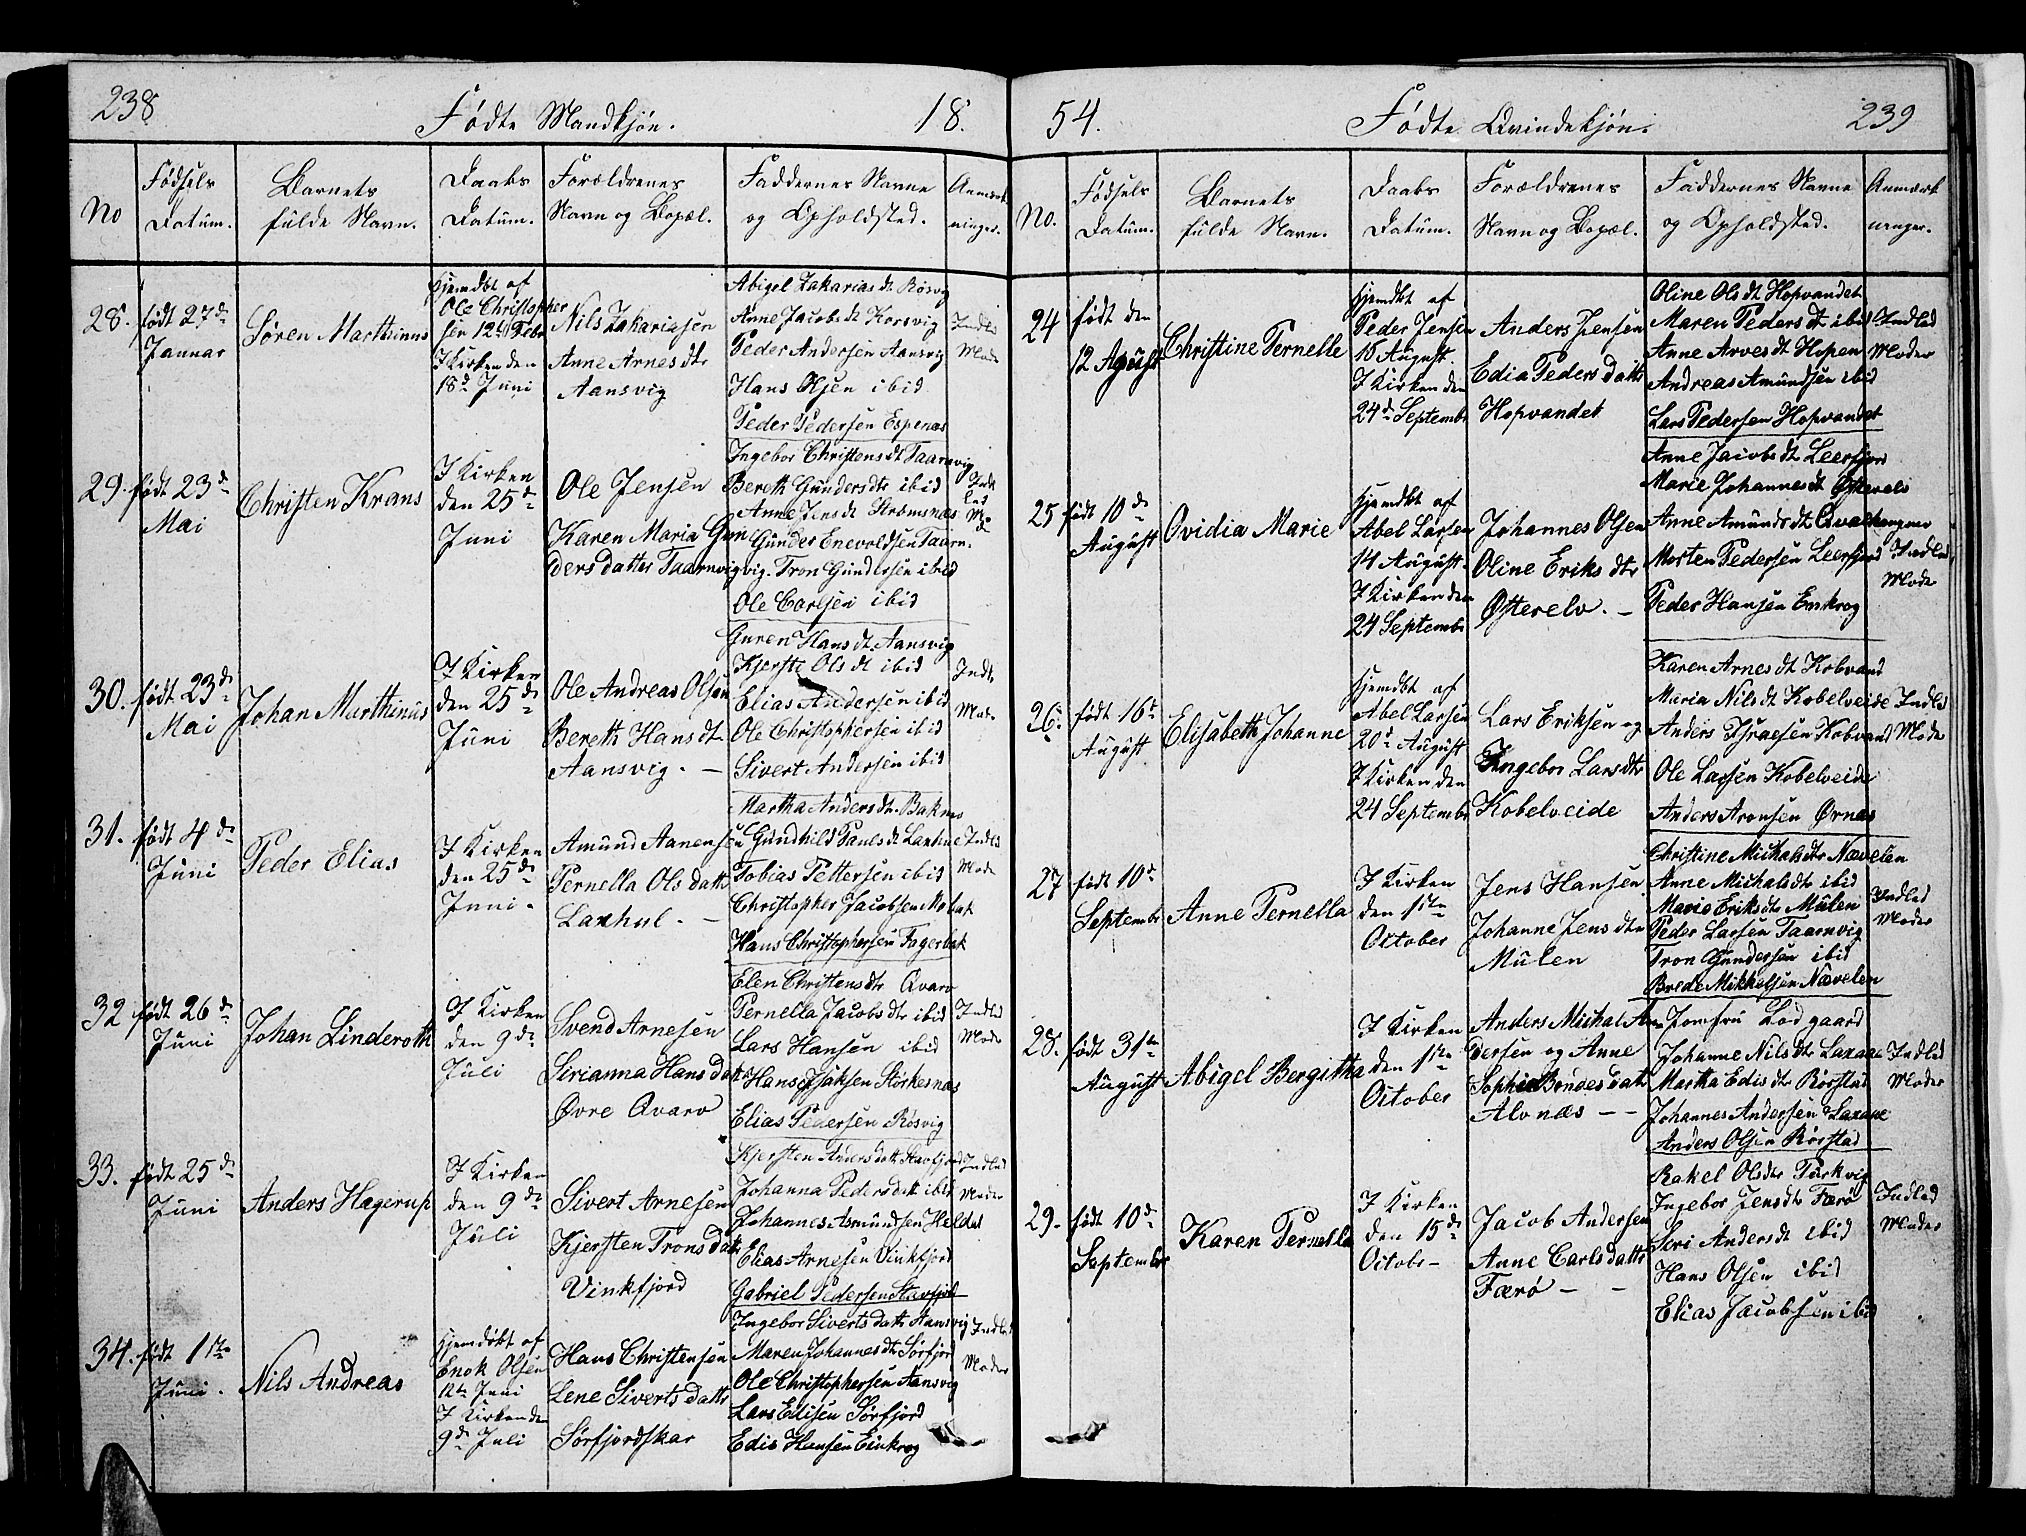 238
Fødte Mandkjøn.
18.
No
Fødsels Datum.
Barnets fulde Navn.
Daabs Datum.
Forældrenes Navn og Bopæl.
Faddernes Navne og Opholdsted.
Anmærkninger.
28. født 27de Januar
Søren Marthinus
Hjemdbt af
Ole Christopher
sen 12te Febr
I Kirken den
18d Juni
Nils Zakariasen
Anne Arnesdtr
Aansvig
Abigel Zakariasdt Røsvig
Anne Jacobsdt Korsvig
Peder Andersen Aansvig
Hans Olsen ibid
Peder Pedersen Espenæs
Indled
Mode
29. født 23de
Mai
Christen Krans
I Kirken
den 25de
Juni
Ole Jensen
Karen Maria Gun
dersdatter Taarnvig
Ingebor Christensdt Taarnvig
Bereth Gundersdtr ibid
Anne Jensdt Strømsnæs
Gunder Enevoldsen Taarn-
vig. Tron Gundersen ibid
Ole Carlsen ibid
Indt
led
M
30. født 23de
Mai
Johan Marthinus
I Kirken
den 25de
Juni
Ole Andreas Olsen
Bereth Hansdt
Aansvig. -
Guren Hansdt Aansvig
Kjersti Olsdt ibid
Elias Andersen ibid
Ole Christophersen ibid
Sivert Andersen ibid
Indt
Mode
31. født 4de
Juni
Peder Elias
I Kirken
den 25de
Juni.
Amund Aanensen
Pernella Olsdatt
Laxhul. -
Martha Andersdtr Baknes
Gundhild Paulsdt Laxhue
Tobias Pettersen ibid
Christopher Jacobsen Mobak
Hans Christophersen Fagerbak
Indled
Mode
32 født 26de
Juni
Johan Linderoth
I Kirken
den 9de
Juli
Svend Arnesen
Sirianna Hansdatt
Øvre Qvarv
Elen Christensdtr Qvarv
Pernella Jacobsdtr ibid
Lars Hansen ibid
Hans Isaksen Storkesnæs
Elias Pedersen Røsvig
Indled
Mode
33. født 25de
Juni
Anders Hagerup
I Kirken
den 9de
Juli
Sivert Arnesen
Kjersten Tronsdatt
Vinkfjord
Kjersten Andersdatt Stavfjord
Johanna Pedersdatt ibid
Johannes Asmundsen Heldal
Elias Arnesen Vinkfjord
Gabriel Pedersen Stavfjord
Indled
Moder
34. født 1ste
Juni.
Nils Andreas
Hjemdøbt af
Enok Olsen
12te Juni
I Kirken den
9de Juli
Hans Christensen
Lene Sivertsdattr
Sørfjordskar
Ingebor Sivertsdattr Aansvig
Maren Johannesdtr Sørfjord
Ole Christophersen Aansvig
Lars Edisen Sørfjord
Edis Hansen Einkrog
Indled
Moder
54.
Fødte Qvindekjøn.
239
No.
Fødsels Datum.
Barnets fulde Navn.
Daabs Datum.
Forældrenes Navn og Bopæl.
Faddernes Navne og Opholdsted.
Anmærkninger.
24 født den
12 August
Christine Pernelle
Hjemdbt af
Peder Jensen
15 August.
I Kirken den
24de Septembr
Anders Jensen
Edia Pedersdattr
Hopvandet
Oline Olsdt Hopvandet
Maren Pedersdtr ibid
Anne Arvesdt Hopen
Andreas Amundsen ibid
Lars Pedersen Hopvandet
Indled
Moder
25 født 10de
August
Ovidia Marie
Hjemdbt af
Abel Larsen
14 August.
I Kirken den
24 Septembr
Johannes Olsen
Oline Eriksdtr
Østerelv. -
Anne Jacobsdtr Leerfjord
Marie Johannesdt Østerelv
Anne Amundsdt Qvalhaugen
Morten Pedersen Leerfjord
Peder Hansen Einkrog
Indled
Mode
26. født 16de
August
Elisabeth Johanne
Hjemdbt af
Abel Larsen
20de August
I Kirken den
24 Septembr
Lars Eriksen og
Ingebor Larsdtr
Kobelveide
Karen Arnesdt Kobvand
Maria Nilsdt Kobelveide
Anders Israelsen Kobvand
Ole Larsen Kobelveide
Anders Aronsen Ørnæs
Indled
Mode
27 født 10de
Septembr
Anne Pernella
I Kirken
den 1ste
October
Jens Hansen
Johanne Jensdtr
Mulen
Christine Michalsdtr Nævelen
Anne Michalsdtr ibid
Marie Eriksdtr Mulen
Peder Larsen Taarnvig
Tron Gundersen ibid
Brede Mikkelsen Nævelen
Indled
Moder
28. født 31te
August
Abigel Bergitha
I Kirken
den 1ste
October
Anders Michal An-
dersen og Anne
Sophie Bendesdatr
Alvnæs - -
Jomfru Lødgaard
Johanne Nilsdtr Laxaae
Martha Edisdtr Rørstad
Johannes Andersen Laxaae
Anders Olsen Rørstad
Indled
Moder
29. født 10de
September
Karen Pernella
I Kirken
den 15de
Octobr -
Jacob Andersen
Anne Carlsdattr
Færø - -
Rakel Olsdtr Turkvig
Ingebor Jensdtr Færø
Seri Andersdt ibid
Hans Olsen ibid
Elias Jacobsen ibid
Indled
Moder